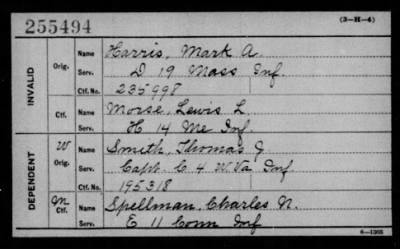 255494 (3-H-4)
INVALID
Orig. Name Harris, Mark A.
Serv. D 19 Mass Inf.
Ctf. No. 235998
Ctf. Name Morse, Lewis L.
Serv. H 14 Me Inf.
DEPENDENT
W Orig. Name Smith, Thomas J.
Serv. Capt. C 4 W Va Inf
Ctf. No. 195318
M Ctf. Name Spellman, Charles N.
Serv. E 11 Conn Inf